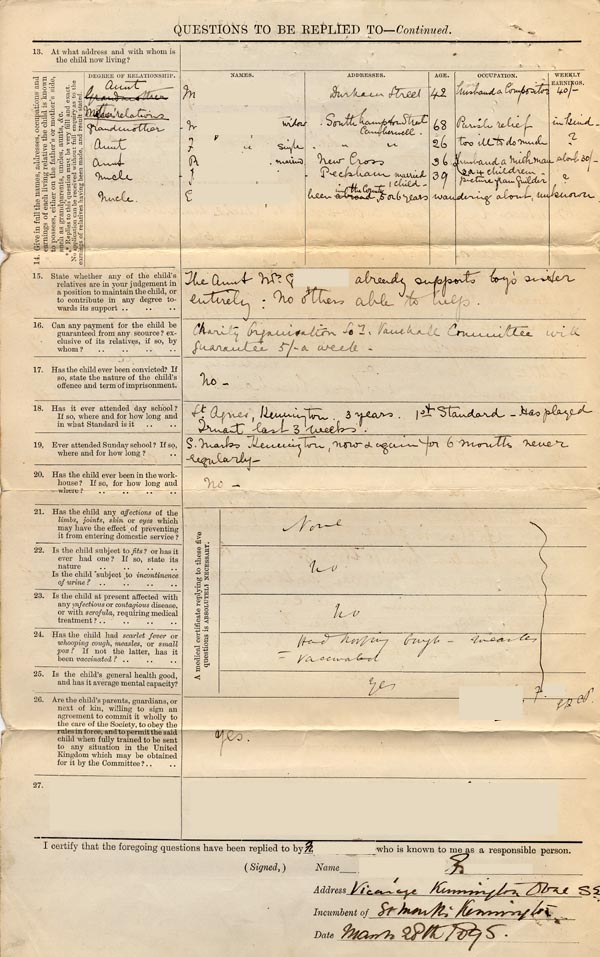 QUESTIONS TO BE REPLIED TO—Continued.
13. At what address and with whom is
the child now living?
14. Give in full the names, addresses, occupations and
earnings of each living relative the child is known
to possess, either on the father's or mother's side,
such as grandparents, uncles, aunts, &c.
DEGREE OF RELATIONSHIP. NAMES. ADDRESSES. AGE. OCCUPATION. WEEKLY EARNINGS.
Aunt M Durham Street 42 husband a Compositor 40/-
Grandmother
Mother's relations
Grandmother widow Southampton Street Camberwell 68 Parish relief in kind
Aunt " single " " 26 too ill to do much ?
Aunt " married New Cross 36 husband a milkman about 30/-
Uncle " Peckham married 1 child 39 picture frame gilder ?
Uncle E been abroad, 5 or 6 years wandering about, unknown
15. State whether any of the child's
relatives are in your judgement in
a position to maintain the child, or
to contribute in any degree to-
wards its support .. .. ..
The Aunt Mrs G already supports boy's sister
entirely: No others able to help.
16. Can any payment for the child be
guaranteed from any scource? ex-
clusive of its relatives, if so, by
whom? .. .. .. ..
Charity Organisation Soty. Vauxhall Committee will
guarantee 5/- a week -
17. Has the child ever been convicted? If
so, state the nature of the child's
offence and term of imprisonment.
no -
18. Has it ever attended day school?
If so, where and for how long and
in what Standard is it .. ..
St Agnes, Kennington. 3 years. 1st Standard - Has played
truant last 3 weeks.
19. Ever attended Sunday school? If so,
where and for how long? ..
S. Marks Kennington, now & again for 6 months never
regularly -
20. Has the child ever been in the work-
house? If so, for how long and
where? .. .. .. ..
no -
A medical certificate replying to these five
questions is ABSOLUTELY NECESSARY.
21. Has the child any affections of the
limbs, joints, skin or eyes which
may have the effect of preventing
it from entering domestic service?
None
22. Is the child subject to fits? or has it
ever had one? If so, state its
nature .. .. .. ..
Is the child subject to incontinence
of urine? .. .. .. ..
No
23. Is the child at present affected with
any infectious or contagious disease,
or with scrofula, requiring medical
treatment? .. .. .. ..
No
24. Has the child had scarlet fever or
whooping cough, measles, or small
pox? If not the latter, has it
been vaccinated? .. .. ..
Had hooping cough - measles
- vaccinated
25. Is the child's general health good,
and has it average mental capacity?
Yes
26. Are the child's parents, guardians, or
next of kin, willing to sign an
agreement to commit it wholly to
the care of the Society, to obey the
rules in force, and to permit the said
child when fully trained to be sent
to any situation in the United
Kingdom which may be obtained
for it by the Committee? .. ..
Yes.
27.
I certify that the foregoing questions have been replied to by who is known to me as a responsible person.
(Signed,) Name
Address Vicarage Kennington Oval SE
Incumbent of St Mark's Kennington
Date March 28th 1895.